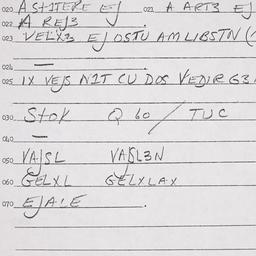 020 A STITERE EJ 021 A ART3 EJ
022 A REJ3
023 VELX3 EJ OSTU AM LIBSTN (
024
025 IX VEJS N2T CU DOS VEDIR G3
030 Stok Q 60 / TUC
040
050 VAJSL VAJSL3N
060 GELXL GELXLAX
070 EJALE